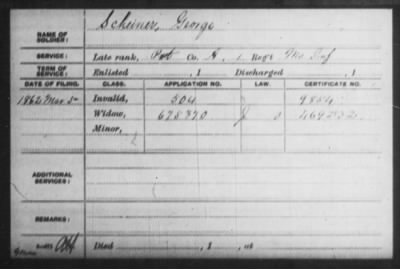 NAME OF SOLDIER: Scheiner, George
SERVICE: Late rank, Pvt Co. A, 1 Reg't Mo. Inf
TERM OF SERVICE: Enlisted , 1 Discharged , 1
DATE OF FILING. CLASS. APPLICATION NO. LAW. CERTIFICATE NO.
1862 Mar 5 Invalid, 504 9854
Widow, 678.870 0
Minor,
ADDITIONAL SERVICES:
REMARKS:
Died , 1 , at